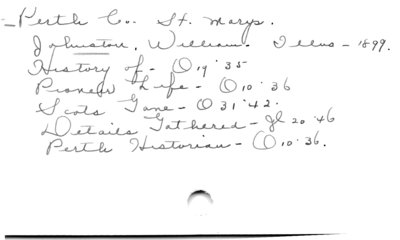 - Perth Co. St. Marys.
Johnston, William. Illus - 1899.
History of - O 19 · 35
Pioneer Life - O 10 · 36
Scots Gone - O 31 · 42.
Details Gathered - Jl 20 · 46
Perth Historian - O 10 · 36.